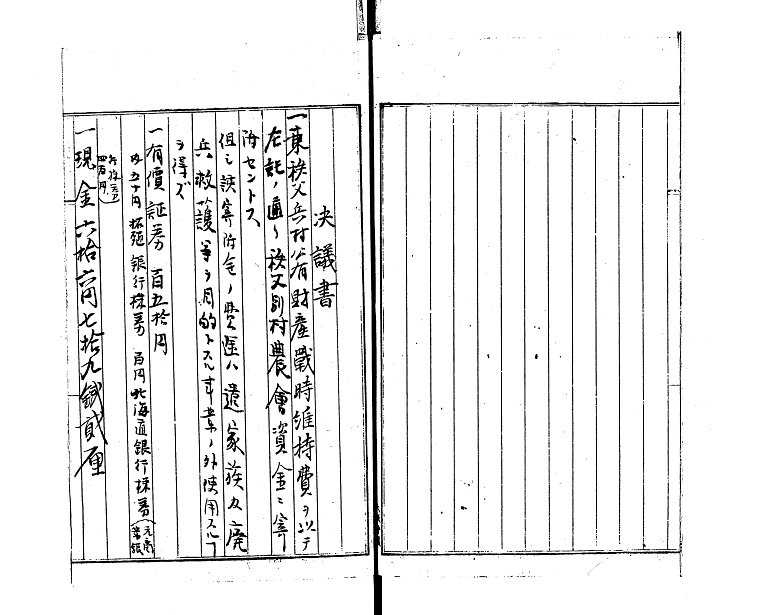 決議書
一東秩父兵村公有財産戰時維持費ヲ以テ
左記ノ通リ秩父別村農會資金ニ寄
附セントス
但シ該寄附金ノ費途ハ遺家族及廢
兵救護等ヲ目的トスル事業ノ外使用スル
ヲ得ズ
一有價証券 百五拾円
内五十円拓殖銀行株券 百円北海道銀行株券
一現金六拾六円七拾九錢貳厘